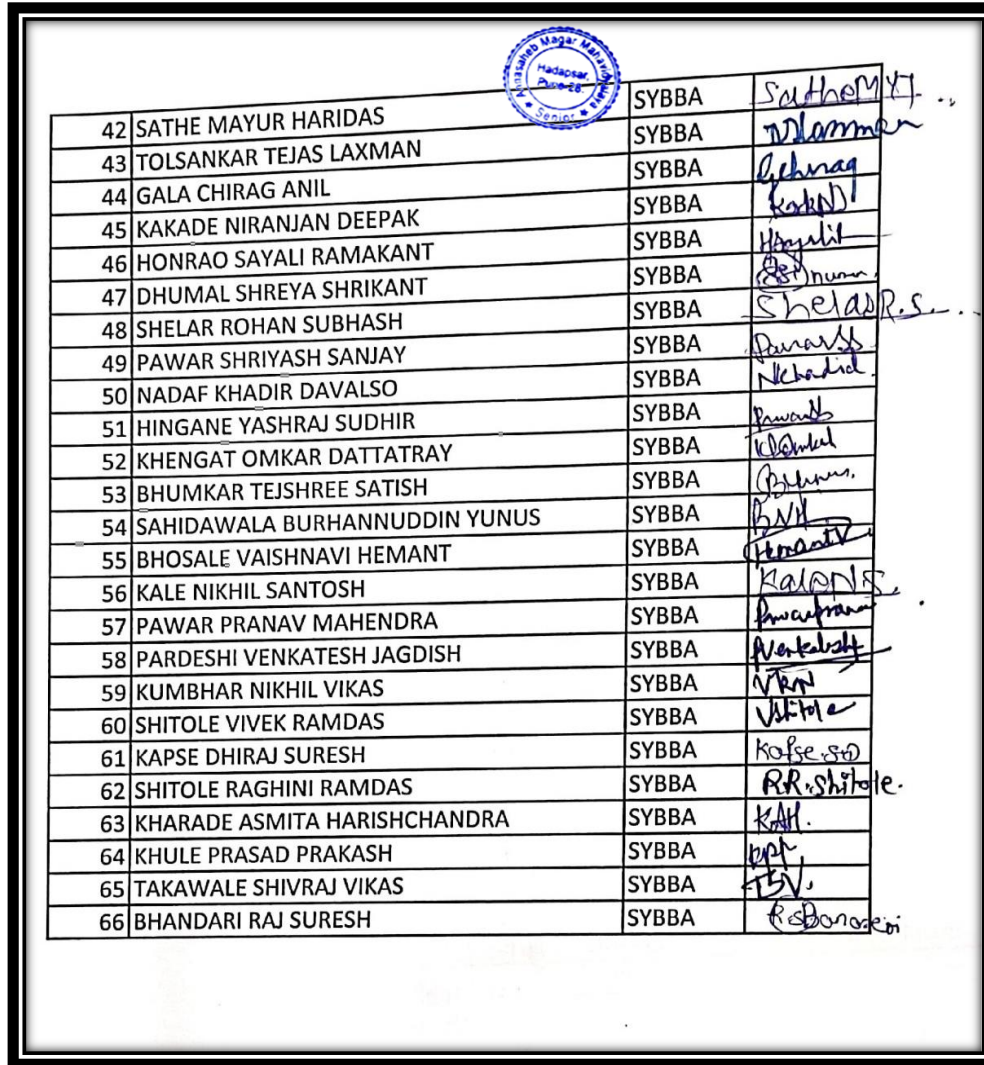 Annasaheb Magar Mahavidyalaya
Hadapsar,
Pune-28.
★ Senior ★
42 SATHE MAYUR HARIDAS SYBBA Sathe
43 TOLSANKAR TEJAS LAXMAN SYBBA
44 GALA CHIRAG ANIL SYBBA Gchirag
45 KAKADE NIRANJAN DEEPAK SYBBA
46 HONRAO SAYALI RAMAKANT SYBBA
47 DHUMAL SHREYA SHRIKANT SYBBA
48 SHELAR ROHAN SUBHASH SYBBA Shelar R.S.
49 PAWAR SHRIYASH SANJAY SYBBA
50 NADAF KHADIR DAVALSO SYBBA
51 HINGANE YASHRAJ SUDHIR SYBBA
52 KHENGAT OMKAR DATTATRAY SYBBA
53 BHUMKAR TEJSHREE SATISH SYBBA
54 SAHIDAWALA BURHANNUDDIN YUNUS SYBBA
55 BHOSALE VAISHNAVI HEMANT SYBBA HemantV
56 KALE NIKHIL SANTOSH SYBBA KaleNS.
57 PAWAR PRANAV MAHENDRA SYBBA
58 PARDESHI VENKATESH JAGDISH SYBBA
59 KUMBHAR NIKHIL VIKAS SYBBA VKN
60 SHITOLE VIVEK RAMDAS SYBBA VShitole
61 KAPSE DHIRAJ SURESH SYBBA
62 SHITOLE RAGHINI RAMDAS SYBBA RR.Shitole.
63 KHARADE ASMITA HARISHCHANDRA SYBBA KAH.
64 KHULE PRASAD PRAKASH SYBBA
65 TAKAWALE SHIVRAJ VIKAS SYBBA TSV.
66 BHANDARI RAJ SURESH SYBBA